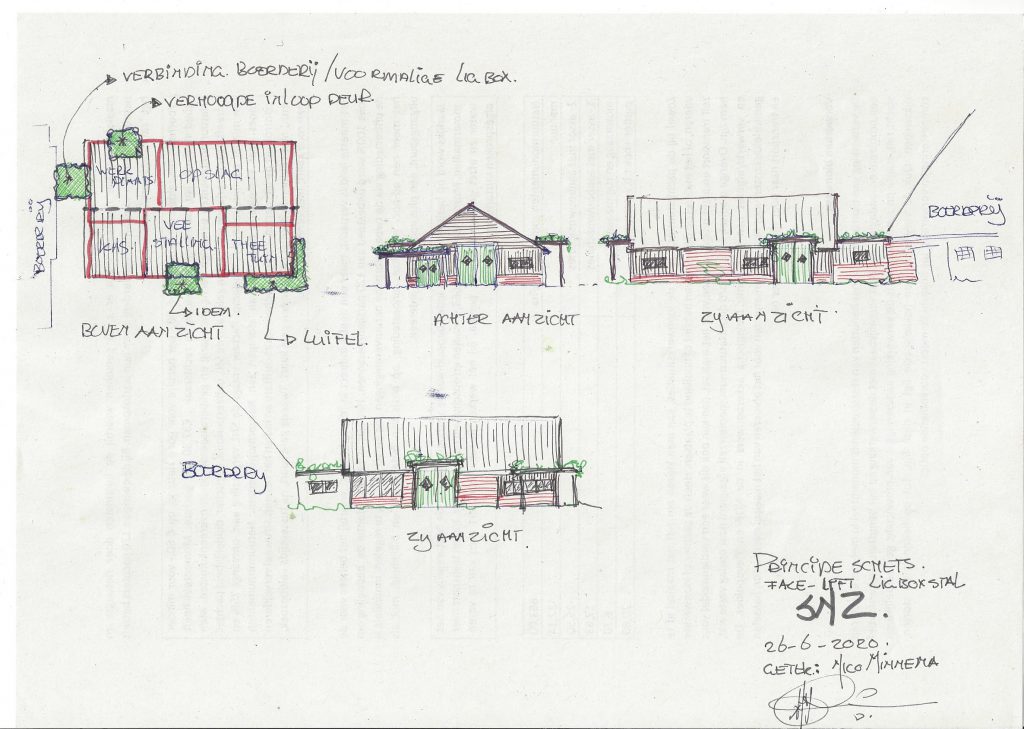 VERBINDING BOERDERIJ / VOORMALIGE LIGBOX.
VERHOOGDE INLOOP DEUR.
BOERDERIJ
WERK
PLAATS
OPSLAG
KAS
VEE
STALLING
THEE
TUIN
IDEM.
BOVEN AANZICHT
LUIFEL.
ACHTER AANZICHT
ZIJ AANZICHT.
BOERDERIJ
BOERDERIJ
ZIJ AANZICHT.
PRINCIPE SCHETS.
FACE-LIFT LIGBOXSTAL
26-6-2020.
GETEK: NICO MINNEMA